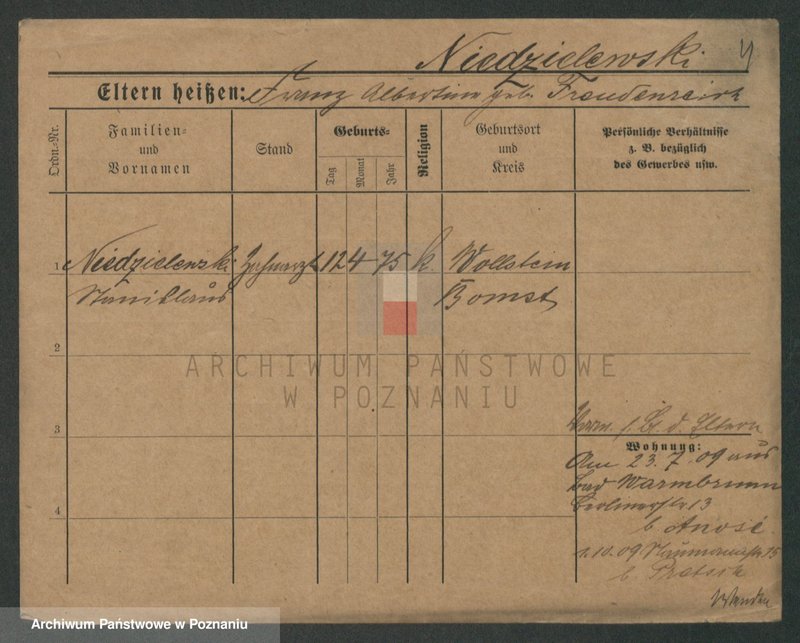 Niedzielewski
Eltern heißen: Franz Albertine geb. Freudenreich
Ordn.-Nr.
Familien- und Vornamen
Stand
Geburts-
Tag
Monat
Jahr
Religion
Geburtsort und Kreis
Persönliche Verhältnisse z. B. bezüglich des Gewerbes usw.
1 Niedzielewski Zahnarzt 12 4 75 k. Wollstein
Stanislaus Bomst
2
ARCHIWUM PAŃSTWOWE
W POZNANIU
3
d. Eltern
Wohnung:
Am 23.7.09 aus
Bad Warmbrunn
Berlinerstr 13
b.
4
1.10.09
b.
Archiwum Państwowe w Poznaniu